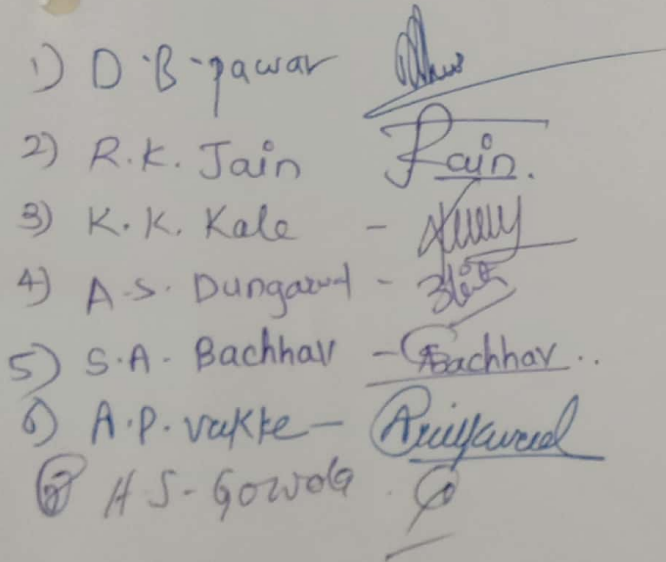 1) D.B-pawar
2) R.K. Jain Jain.
3) K.K. Kale -
4) A.S. -
5) S.A. Bachhav - Bachhav ..
6) A.P. vakte -
H S-Gowda